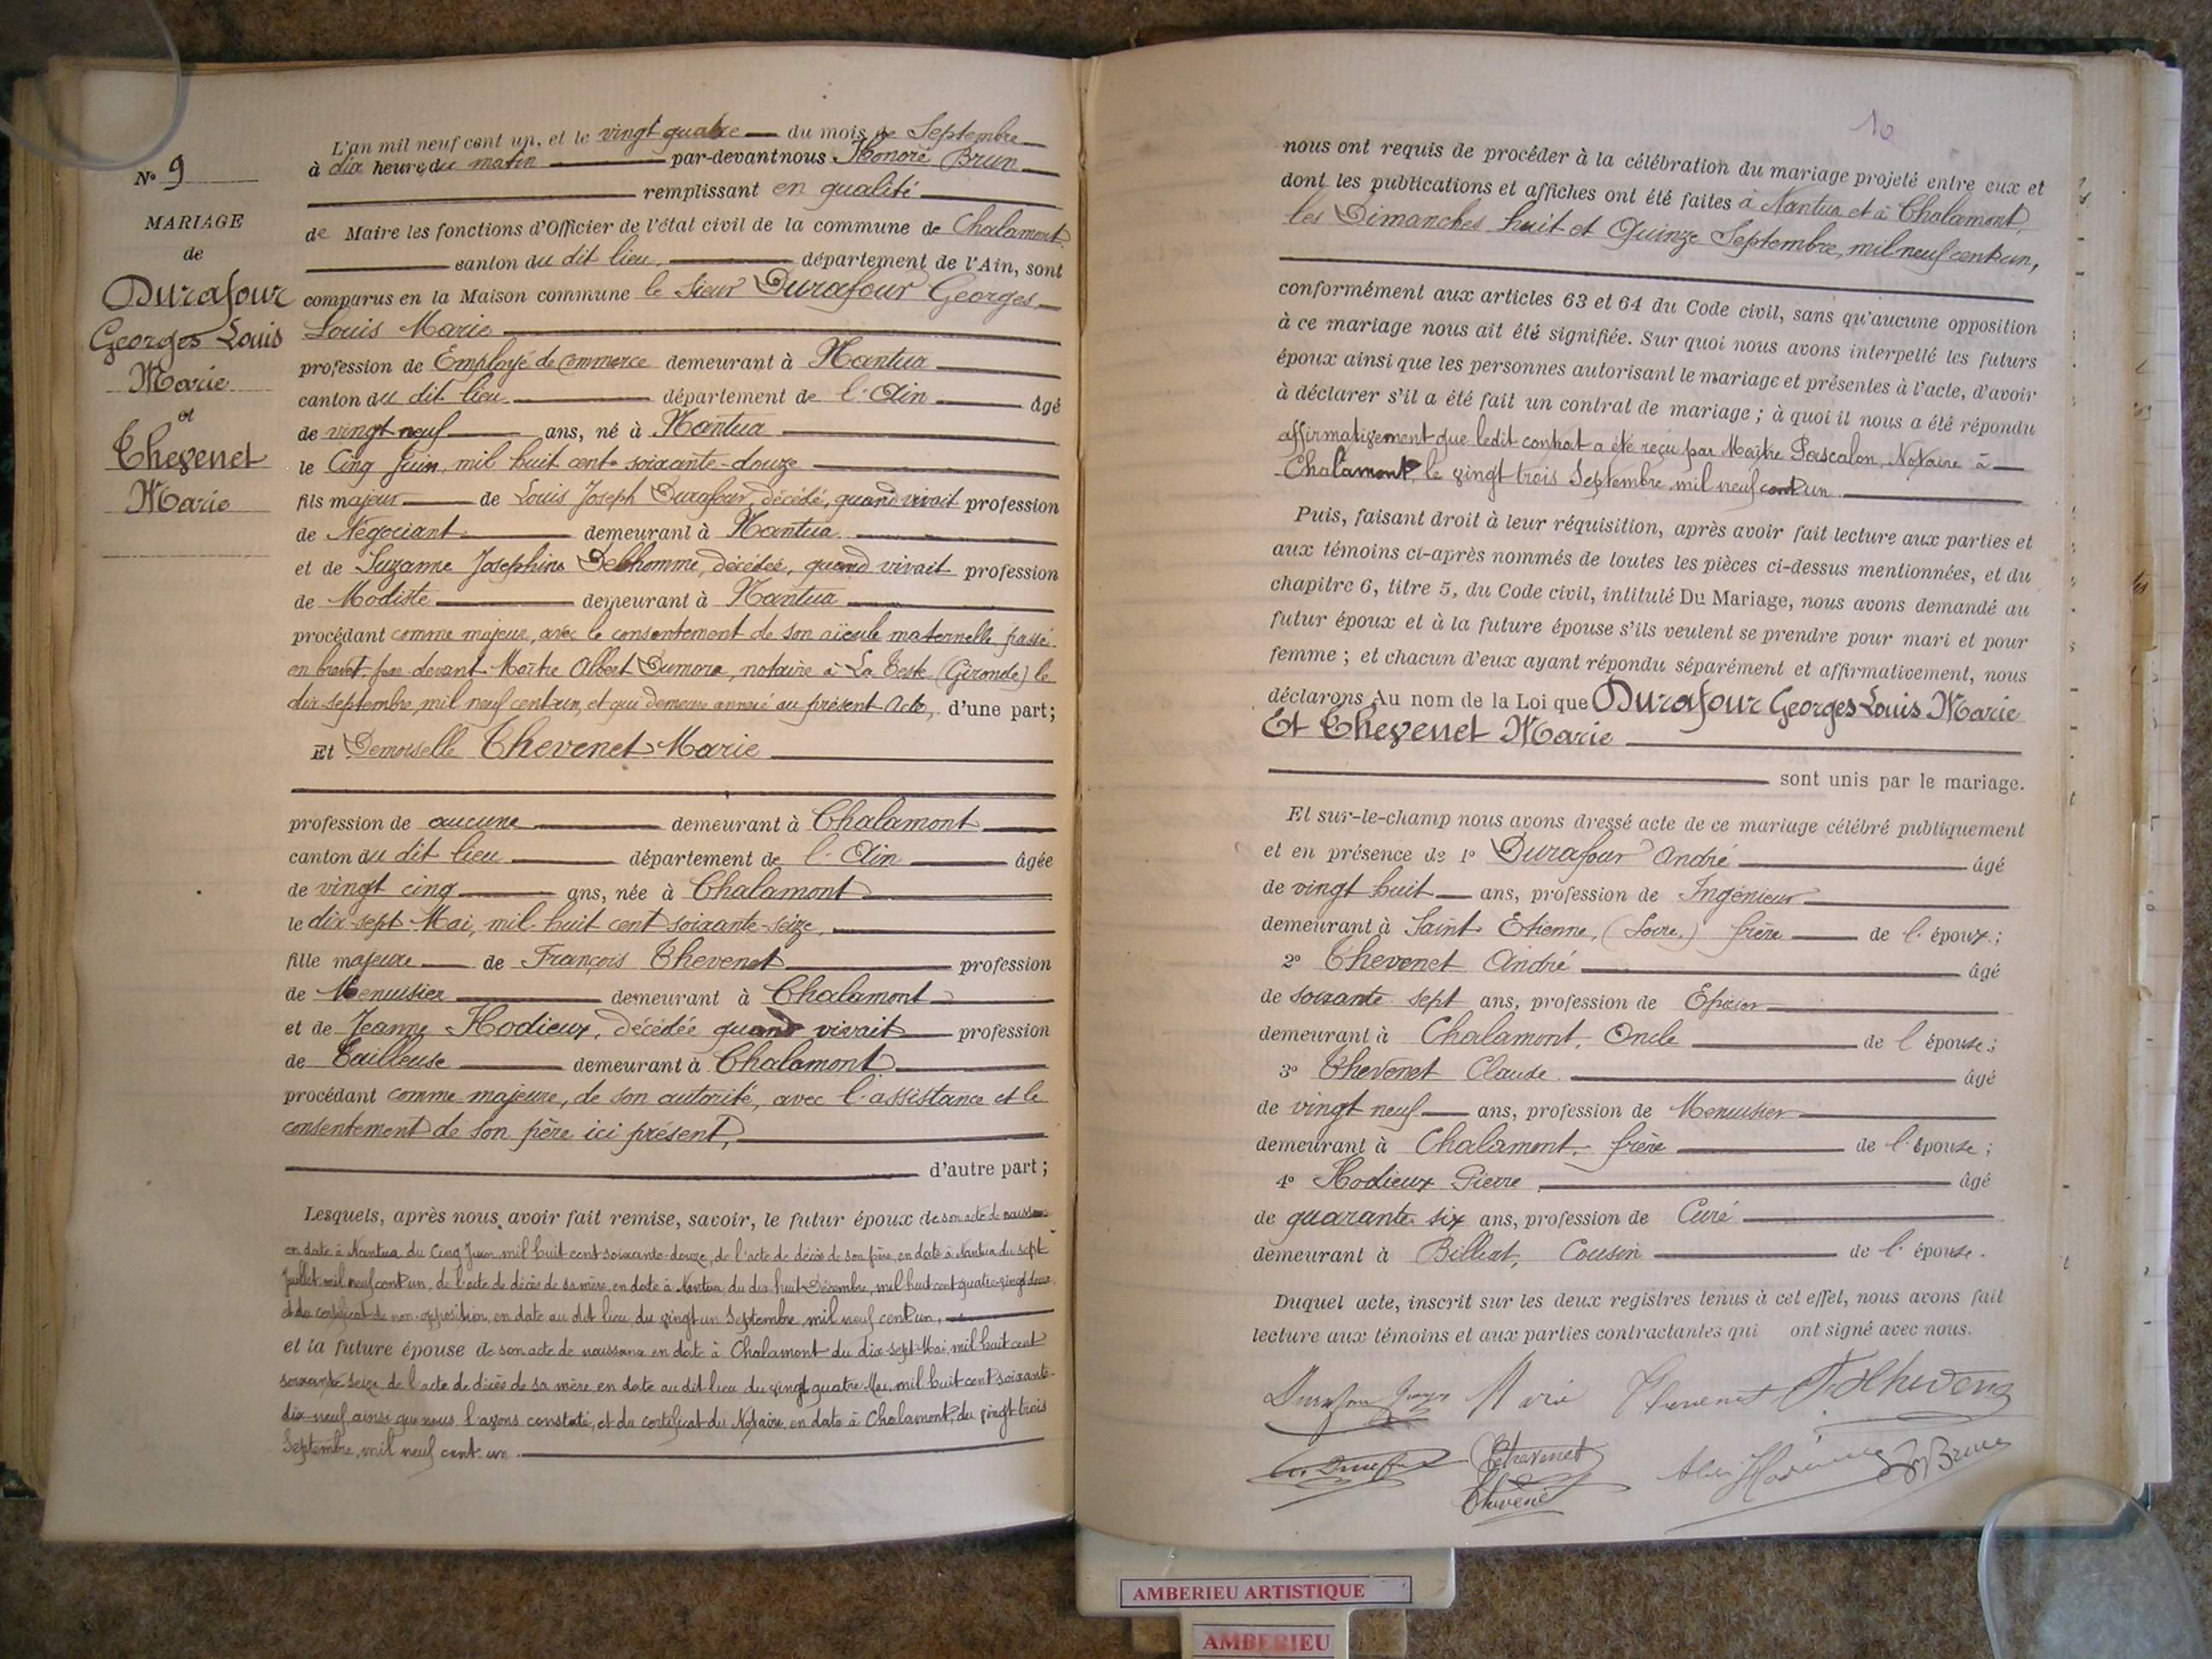 N° 9
MARIAGE
de
Durafour
Georges Louis
Marie
et
Thevenet
Marie
L'an mil neuf cent un, et le vingt quatre du mois de Septembre
à dix heures du matin par-devant nous Honoré Brun
remplissant en qualité
de Maire les fonctions d'Officier de l'état civil de la commune de Chalamont
canton du dit lieu, département de l'Ain, sont
comparus en la Maison commune le Sieur Durafour Georges
Louis Marie
profession de Employé de Commerce demeurant à Nantua
canton du dit lieu département de l'Ain âgé
de vingt neuf ans, né à Nantua
le Cinq Juin, mil huit cent soixante-douze
fils majeur de Louis Joseph Durafour, décédé, quand vivait profession
de Négociant demeurant à Nantua
et de Suzanne Josephine Delhomme, décédée, quand vivait profession
de Modiste demeurant à Nantua
procédant comme majeur, avec le consentement de son aïeule maternelle passé
en brevet par devant Maître Albert Dumora, notaire à La Teste (Gironde) le
dix septembre, mil neuf cent un, et qui demeure annexé au présent Acte, d'une part;
Et Demoiselle Thevenet Marie
profession de aucune demeurant à Chalamont
canton du dit lieu département de l'Ain âgée
de vingt cinq ans, née à Chalamont
le dix sept Mai, mil huit cent soixante-seize,
fille majeure de François Thevenet profession
de Menuisier demeurant à Chalamont
et de Jeanne Hodieux, décédée quand vivait profession
de Tailleuse demeurant à Chalamont
procédant comme majeure, de son autorité, avec l'assistance et le
consentement de son père ici présent,
d'autre part;
Lesquels, après nous avoir fait remise, savoir, le futur époux de son acte de naissance
en date à Nantua du Cinq Juin mil huit cent soixante-douze, de l'acte de décès de son père, en date à Nantua du sept
Juillet mil neuf cent un, de l'acte de décès de sa mère, en date à Nantua, du dix huit Décembre, mil huit cent quatre-vingt douze
et du certificat de non-opposition, en date au dit lieu, du vingt un Septembre mil neuf cent un,
et la future épouse de son acte de naissance en date à Chalamont du dix-sept Mai mil huit cent
soixante seize, de l'acte de décès de sa mère, en date au dit lieu du vingt quatre Mai, mil huit cent soixante-
dix-neuf ainsi que nous l'avons constaté, et du certificat du Notaire, en date à Chalamont, du vingt trois
Septembre, mil neuf cent un
10
nous ont requis de procéder à la célébration du mariage projeté entre eux et
dont les publications et affiches ont été faites à Nantua et à Chalamont,
les Dimanches huit et Quinze Septembre, mil neuf cent un,
conformément aux articles 63 et 64 du Code civil, sans qu'aucune opposition
à ce mariage nous ait été signifiée. Sur quoi nous avons interpellé les futurs
époux ainsi que les personnes autorisant le mariage et présentes à l'acte, d'avoir
à déclarer s'il a été fait un contrat de mariage ; à quoi il nous a été répondu
affirmativement que ledit contrat a été reçu par Maître Pascalon, Notaire à
Chalamont, le vingt trois Septembre mil neuf cent un
Puis, faisant droit à leur réquisition, après avoir fait lecture aux parties et
aux témoins ci-après nommés de toutes les pièces ci-dessus mentionnées, et du
chapitre 6, titre 5, du Code civil, intitulé Du Mariage, nous avons demandé au
futur époux et à la future épouse s'ils veulent se prendre pour mari et pour
femme ; et chacun d'eux ayant répondu séparément et affirmativement, nous
déclarons Au nom de la Loi que Durafour Georges Louis Marie
Et Thevenet Marie
sont unis par le mariage.
Et sur-le-champ nous avons dressé acte de ce mariage célébré publiquement
et en présence de 1° Durafour André âgé
de vingt huit ans, profession de Ingénieur
demeurant à Saint Etienne, (Loire,) frère de l'époux;
2° Thevenet André âgé
de soixante sept ans, profession de Epicier
demeurant à Chalamont, Oncle de l'épouse;
3° Thevenet Claude âgé
de vingt neuf ans, profession de Menuisier
demeurant à Chalamont, frère de l'épouse;
4° Hodieux Pierre âgé
de quarante six ans, profession de Curé
demeurant à Billiat, Cousin de l'épouse.
Duquel acte, inscrit sur les deux registres tenus à cet effet, nous avons fait
lecture aux témoins et aux parties contractantes qui ont signé avec nous.
Durafour Georges Marie Thevenet F Thevenet
Durafour Thevenet Hodieux H Brun
Thevenet
AMBERIEU ARTISTIQUE
AMBERIEU